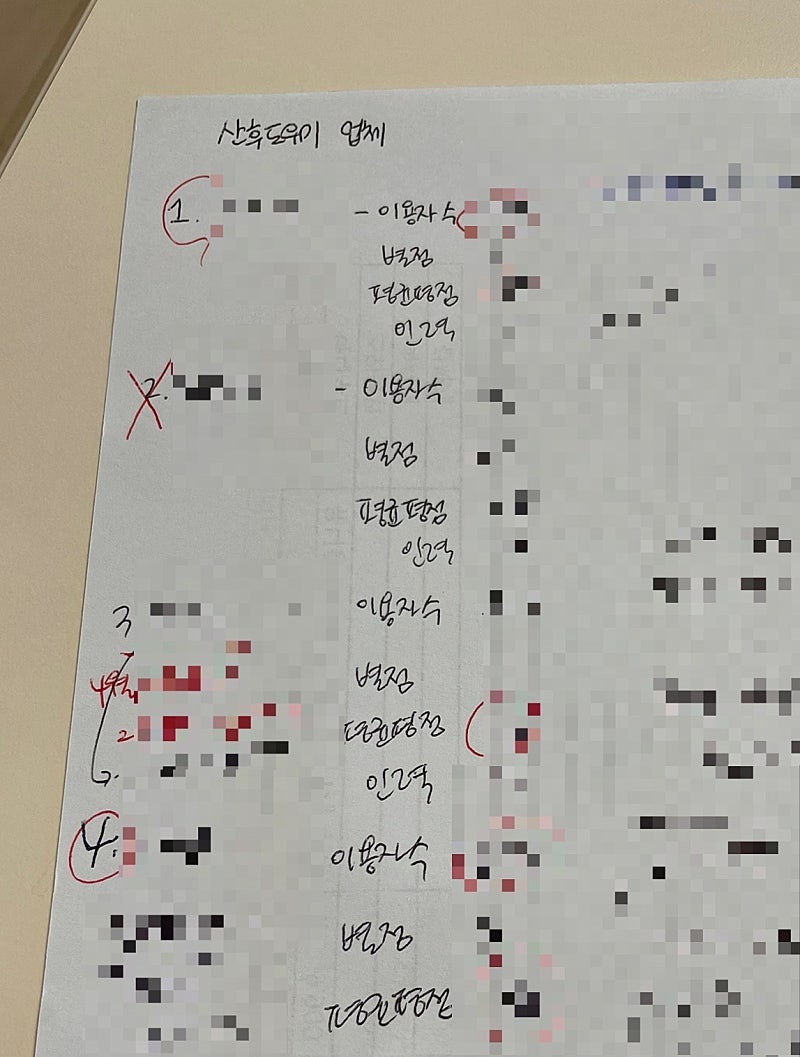 산후도우미 업체
1. - 이용자수
별점
평균평점
인력
2. - 이용자수
별점
평균평점
인력
3 이용자수
별점
2 평균평점
인력
4. 이용자수
별점
평균평점